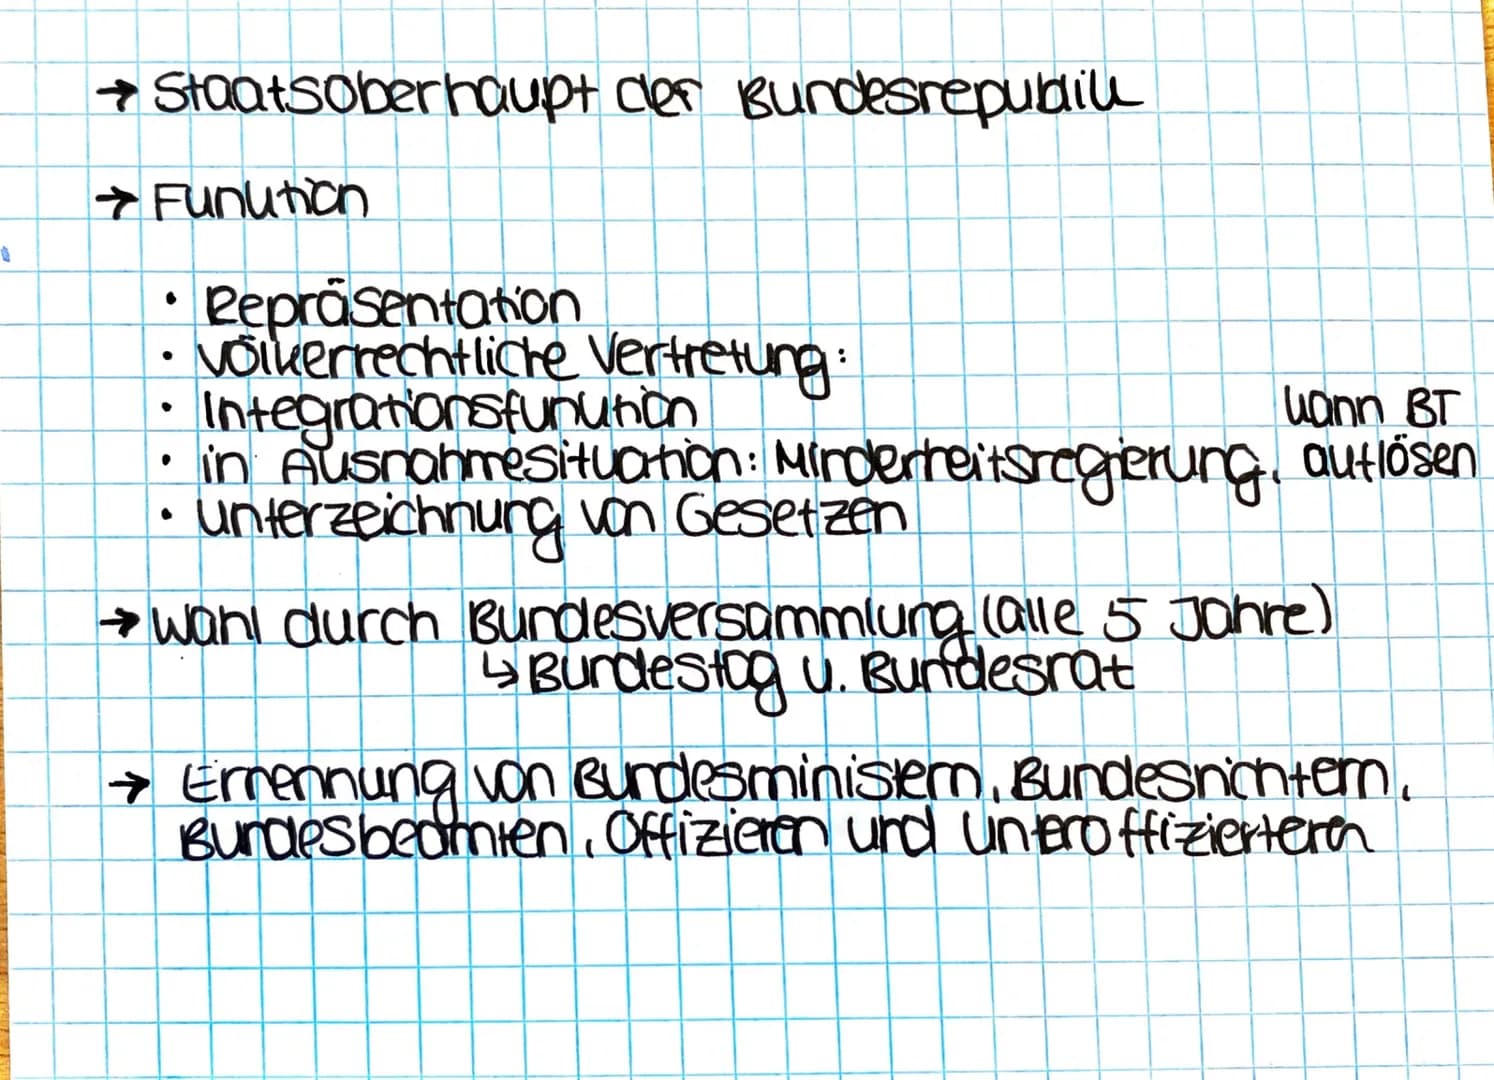 → Staatsoberhaupt der Bundesrepublik
→ Funktion
• Repräsentation
• völkerrechtliche Vertretung:
• Integrationsfunktion
• in Ausnahmesituation: Minderheitsregierung, kann BT auflösen
• unterzeichnung von Gesetzen
→ Wahl durch Bundesversammlung (alle 5 Jahre)
↳ Bundestag u. Bundesrat
→ Ernennung von Bundesministern, Bundesrichtern,
Bundesbeamten, Offizieren und Unteroffizierteren